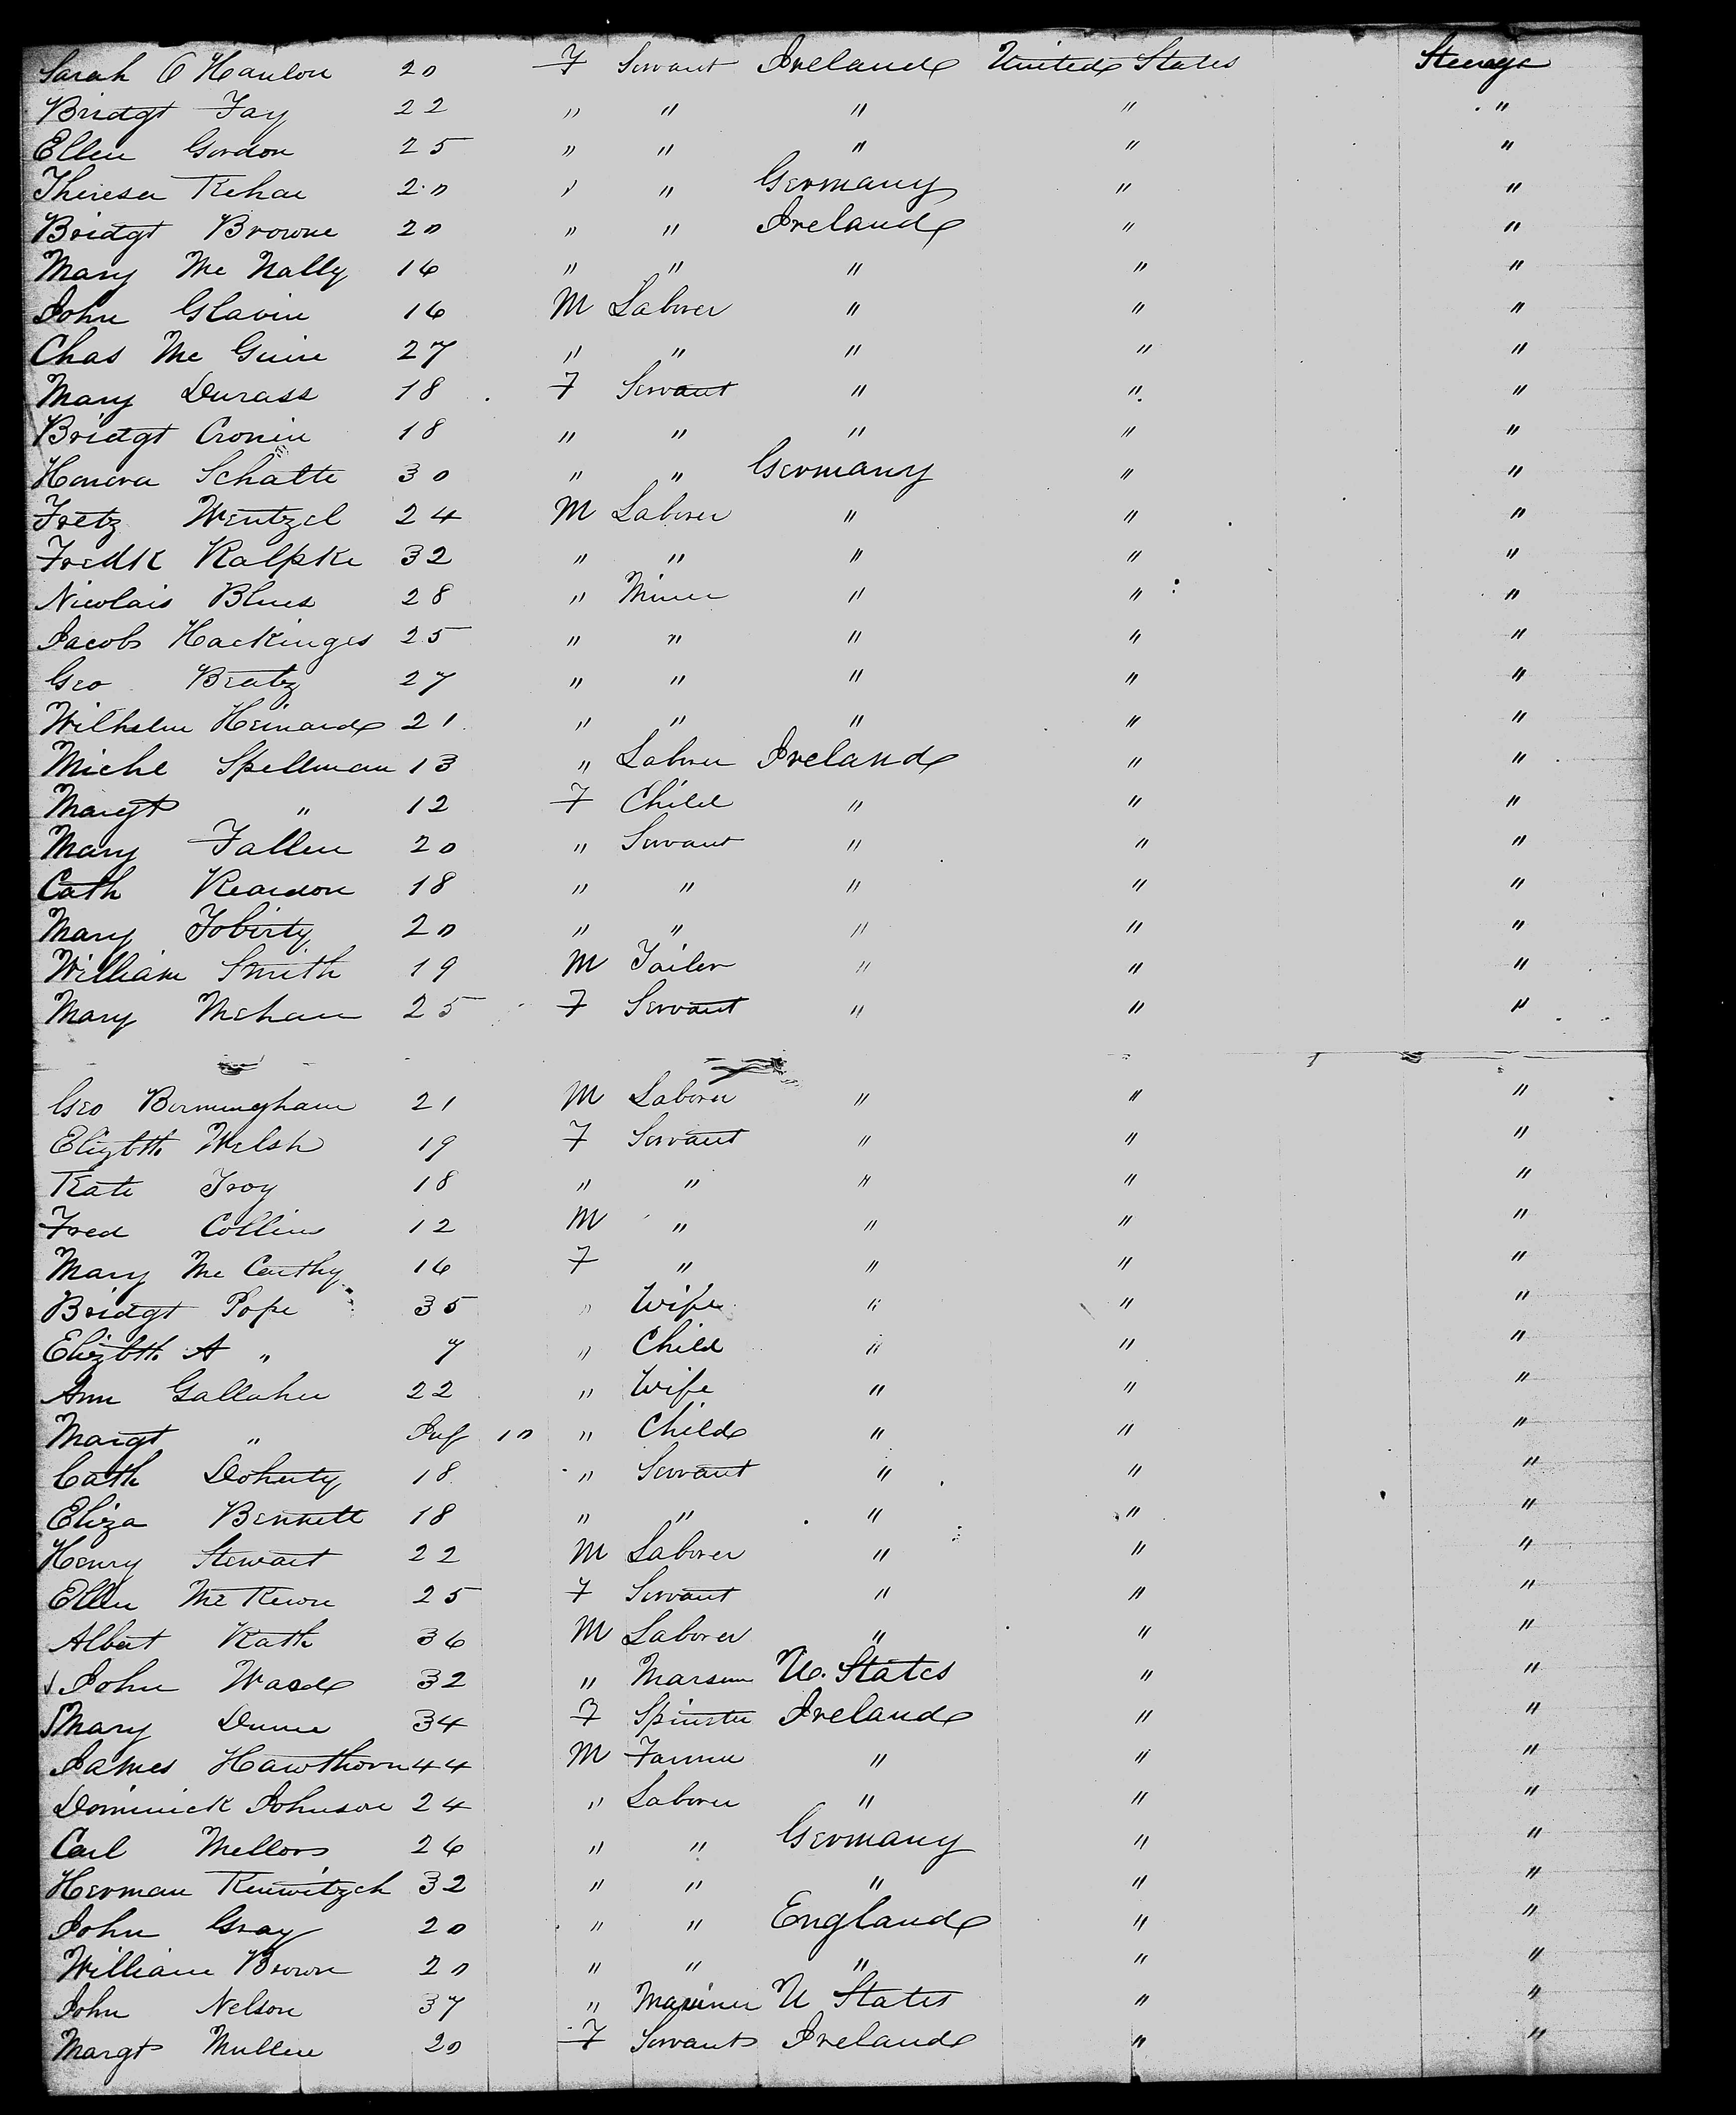 Sarah O'Hanlon 20 F Servant Ireland United States Steerage
Bridgt Fay 22 " " " " "
Ellen Gordon 25 " " " " "
Theresa Kehae 20 " " Germany " "
Bridgt Browne 20 " " Ireland " "
Mary Mc Nally 16 " " " " "
John Glavin 16 M Laborer " " "
Chas Mc Guire 27 " " " " "
Mary Durass 18 F Servant " " "
Bridgt Cronin 18 " " " " "
Schatte 30 " " Germany " "
Fretz Wentzel 24 M Laborer " " "
Fredk Kalpke 32 " " " " "
Nicolais Blues 28 " Miner " " "
Jacob Hackinges 25 " " " " "
Geo Beatz 27 " " " " "
Wilhelm Heinard 21 " " " " "
Michl Spellman 13 " Laborer Ireland " "
Margt " 12 F Child " " "
Mary Fallen 20 " Servant " " "
Cath Reardon 18 " " " " "
Mary Foberty 20 " " " " "
William Smith 19 M Tailor " " "
Mary Mehan 25 F Servant " " "
Geo Bermingham 21 M Laborer " " "
Elizbth Welsh 19 F Servant " " "
Kate Troy 18 " " " " "
Fred Collins 12 M " " " "
Mary Mc Carthy 16 F " " " "
Bridgt Pope 35 " Wife " " "
Elizbth A " 7 " Child " " "
Ann Gallaher 22 " Wife " " "
Margt " Inf 10 " Child " " "
Cath Doherty 18 " Servant " " "
Eliza Bennett 18 " " " " "
Henry Stewart 22 M Laborer " " "
Ellen Mc Keown 25 F Servant " " "
Albert Rath 36 M Laborer " " "
John Wade 32 " U. States " "
Mary Dunne 34 F Spinster Ireland " "
James Hawthorn 44 M Farmer " " "
Dominick Johnson 24 " Laborer " " "
Carl Mellors 26 " " Germany " "
Herman Kenwitzch 32 " " " " "
John Gray 20 " " England " "
William Brown 20 " " " " "
John Nelson 37 " Mariner U States " "
Margt Mullen 20 F Servant Ireland " "